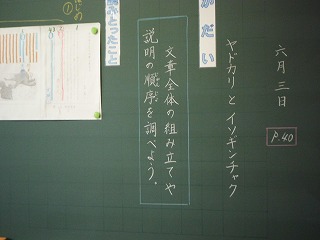 六月三日
P.40
ヤドカリとイソギンチャク
かだい
文章全体の組み立てや
説明の順序を調べよう。
読みとったこと
はじめ
①